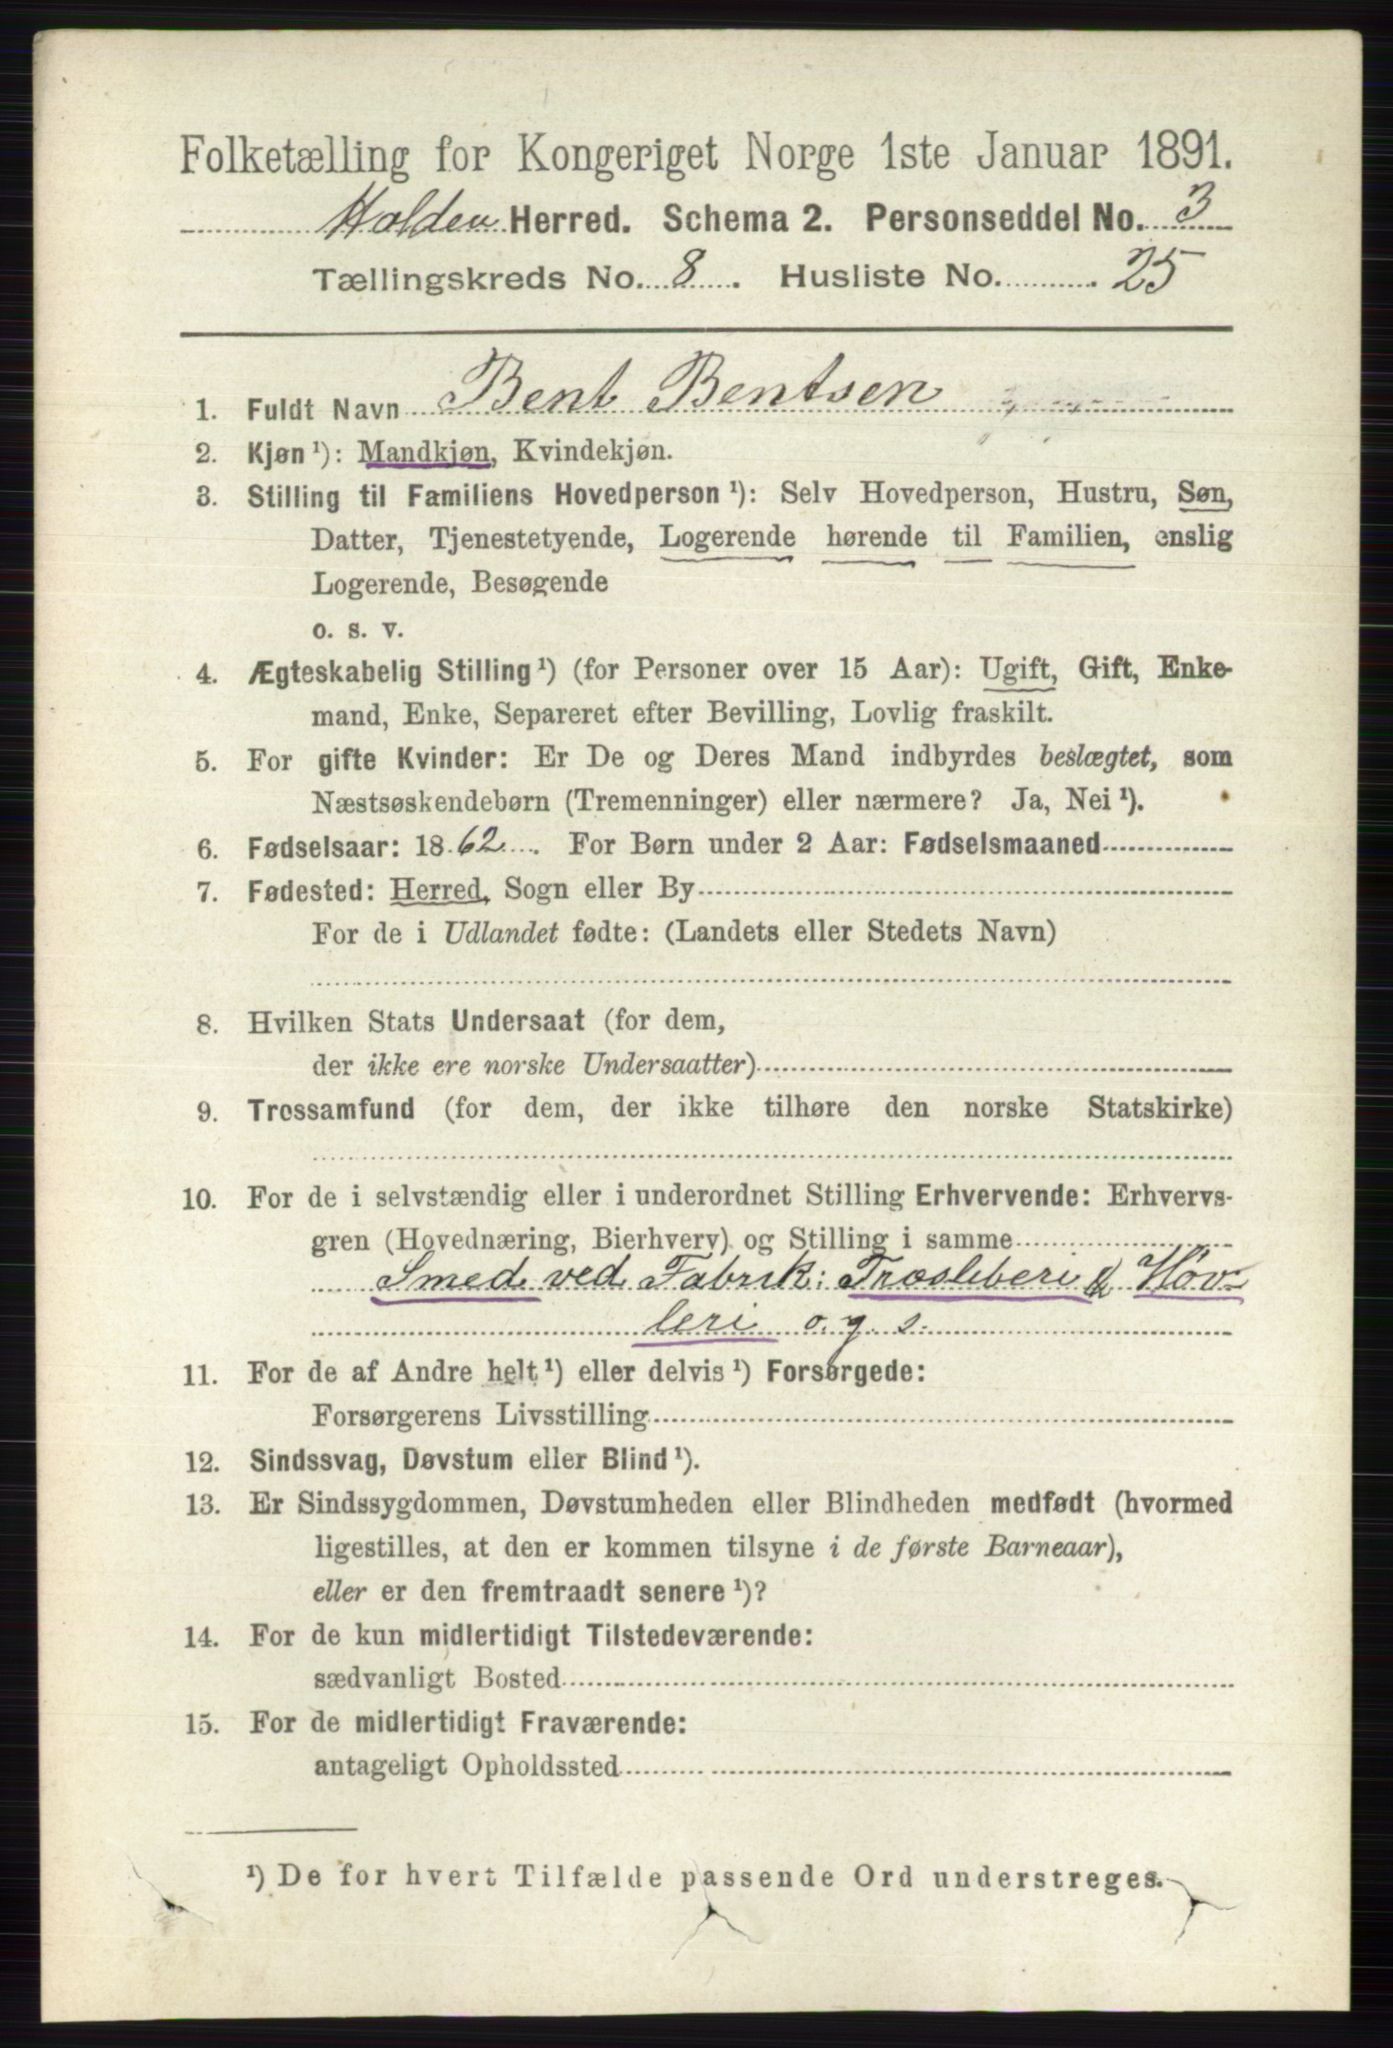 Folketælling for Kongeriget Norge 1ste Januar 1891.
Holden Herred. Schema 2. Personseddel No. 3
Tællingskreds No. 8. Husliste No. 25
1. Fuldt Navn Bent Bentsen
2. Kjøn ¹): Mandkjøn, Kvindekjøn.
3. Stilling til Familiens Hovedperson ¹): Selv Hovedperson, Hustru, Søn,
Datter, Tjenestetyende, Logerende hørende til Familien, enslig
Logerende, Besøgende
o. s. v.
4. Ægteskabelig Stilling ¹) (for Personer over 15 Aar): Ugift, Gift, Enke-
mand, Enke, Separeret efter Bevilling, Lovlig fraskilt.
5. For gifte Kvinder: Er De og Deres Mand indbyrdes beslægtet, som
Næstsøskendebørn (Tremenninger) eller nærmere? Ja, Nei ¹).
6. Fødselsaar: 1862. For Børn under 2 Aar: Fødselsmaaned
7. Fødested: Herred, Sogn eller By
For de i Udlandet fødte: (Landets eller Stedets Navn)
8. Hvilken Stats Undersaat (for dem,
der ikke ere norske Undersaatter)
9. Trossamfund (for dem, der ikke tilhøre den norske Statskirke)
10. For de i selvstændig eller i underordnet Stilling Erhvervende: Erhvervs-
gren (Hovednæring, Bierhverv) og Stilling i samme
Smed ved Fabrik: Træsliberi & Høv-
leri o. g. s.
11. For de af Andre helt ¹) eller delvis ¹) Forsørgede:
Forsørgerens Livsstilling
12. Sindssvag, Døvstum eller Blind ¹).
13. Er Sindssygdommen, Døvstumheden eller Blindheden medfødt (hvormed
ligestilles, at den er kommen tilsyne i de første Barneaar),
eller er den fremtraadt senere ¹)?
14. For de kun midlertidigt Tilstedeværende:
sædvanligt Bosted
15. For de midlertidigt Fraværende:
antageligt Opholdssted
¹) De for hvert Tilfælde passende Ord understreges.